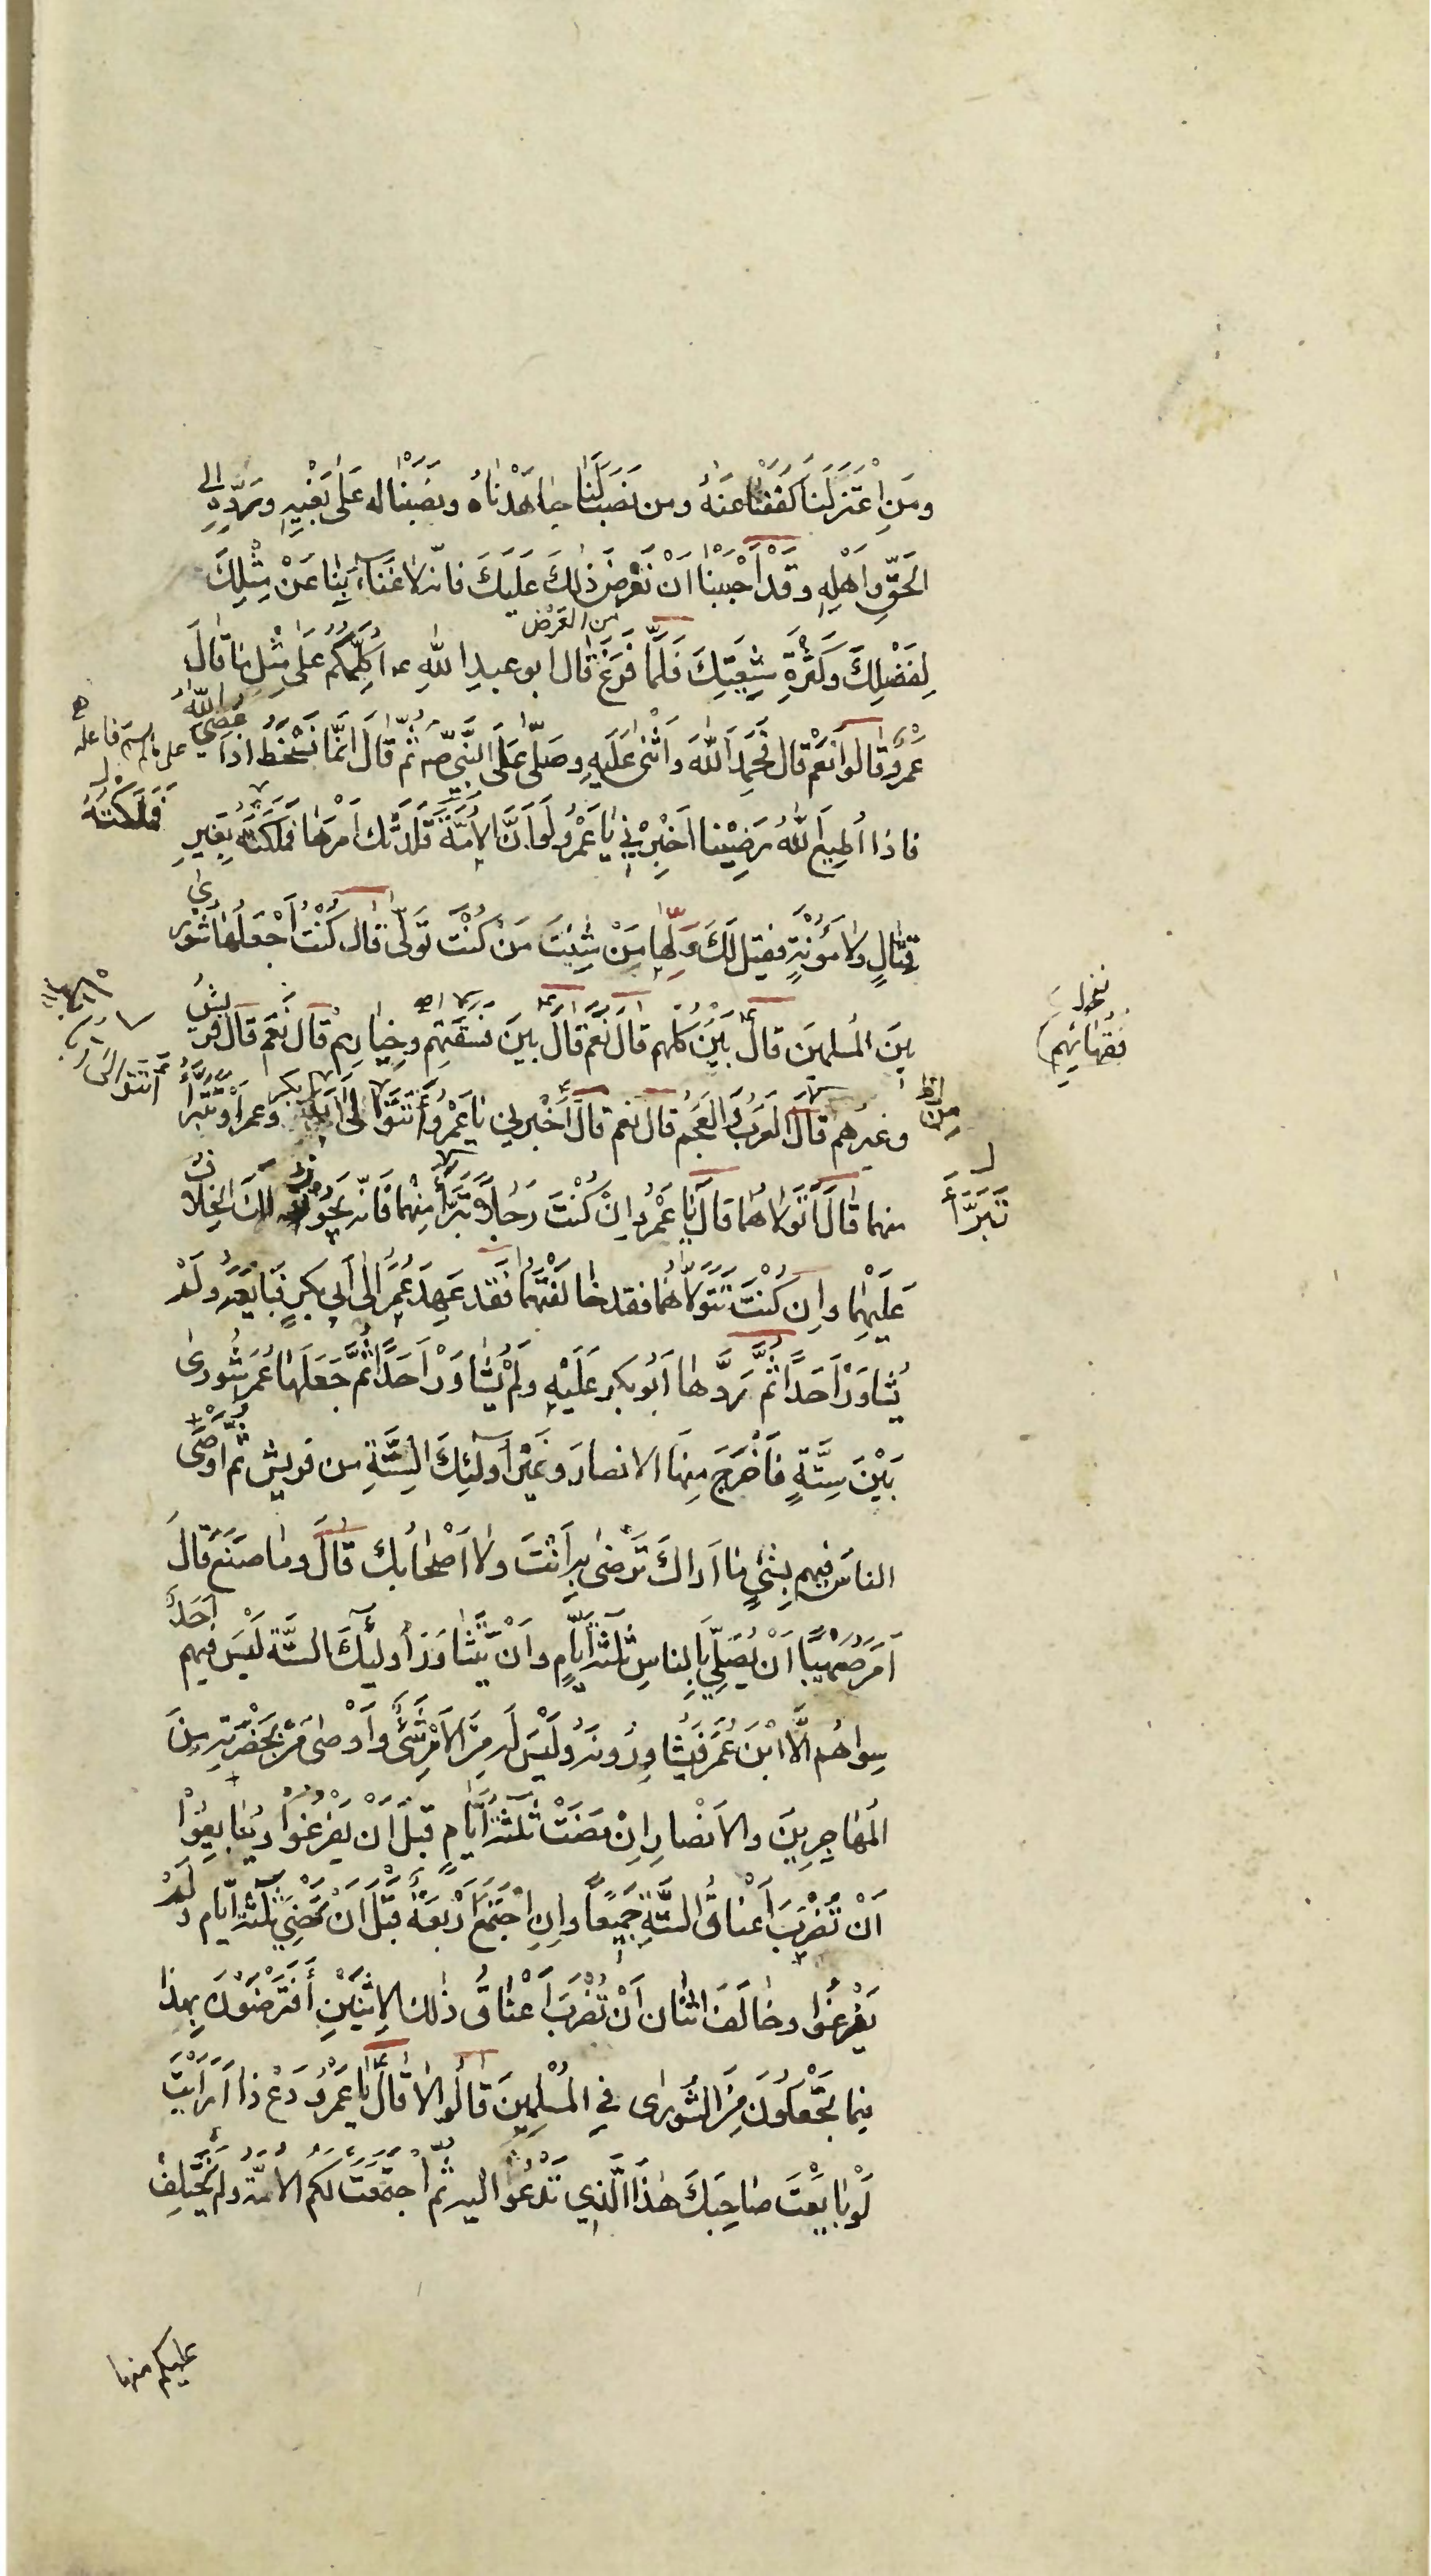 ومَنِ اعْتَزَلَنا كَفَفْنا عَنْهُ ومن نَصَبَ لَنا جاهَدْناهُ ونصَبْنا له عَلى بَغْيِهِ ونَرُدُّهُ إلى
الحَقِّ وأَهْلِهِ وقَدْ أَحْبَبْنا أَنْ نَعْرِضَ ذٰلكَ عَلَيكَ فانّه لا غَناءَ بِنا عَنْ مِثْلِكَ
من العَرْض
لِفَضْلِكَ وكَثْرَةِ شِيعَتِكَ فَلَمّا فَرَغَ قال ابو عبدِ اللهِ ع أكلُّكُم عَلى مِثْلِ ما قالَ
عَمْرٌو قالُوا نَعَمْ قال فَحَمِدَ اللهَ وأَثْنى عَلَيهِ وصَلّى عَلَى النَّبِيِّ ص ثُمَّ قَالَ انَّما نَسْخَطُ اذا عُصِيَ اللهُ
على ما لم يسم فاعله
فاذا أُطِيعَ اللهُ رَضِينا أَخْبِرْنِي يا عَمْرُو لَو أَنَّ الأُمَّةَ قَلَّدَتْكَ أَمْرَها فَمَلَكْتَهُ بِغَيرِ
فَمَلَكْتَهُ
قِتالٍ ولا مَؤُنَةٍ فقيل لَكَ وَلِّها مَنْ شِئْتَ مَنْ كُنْتَ تُوَلِّي قال كُنْتُ أَجْعَلُها شُورى
بينَ المُسلمينَ قالَ بَيْنَ كلِّهم قالَ نَعَم قالَ بينَ فسقتِهِم وخِيارِهِم قال نَعَم قال قُرَيشٌ
فُقَهائِهِم
وغيرهم قالَ العَرَبُ والعَجَم قال نعم قال أَخْبِرني يا عَمْرُو أَتَتَوَلّى أبا بكر وعمر أو تَتَبَرَّأُ
من
منهما قالَ أَتَولّاهُما قالَ يا عَمْرُو إِنْ كُنْتَ رَجُلاً تَتَبَرَّأُ مِنْهُما فَانّه يَجُوزُ لَكَ الخِلافُ
تَتَبَرَّأُ
عَلَيْهِما وإن كُنْتَ تَتَوَلّاهُما فقد خالَفْتَهُما فَقَد عَهِدَ عُمَرُ إلى أَبي بكرٍ فَبايَعَهُ ولَمْ
يُشاوِرْ أَحَداً ثُمَّ رَدَّها أَبُو بكرٍ عَلَيْهِ ولَمْ يُشاوِرْ أَحَداً ثُمَّ جَعَلَها عُمَر شُورى
بَيْنَ سِتَّةٍ فَأَخْرَجَ مِنها الانصارَ وغَيْرَ أُولئِكَ السِتَّةِ من قريش ثُمَّ أَوْصَى
الناسَ فيهِم بِشَيءٍ ما اَراكَ تَرْضى بهِ أَنْتَ ولا أَصْحابُكَ قالَ وما صَنَعَ قالَ
أَمَرَ صُهَيْباً أَنْ يُصَلِّيَ بِالناسِ ثَلٰثَةَ أَيّامٍ وأَنْ يَتَشاوَرَ أُولئِكَ السِتَّة لَيْسَ فيهِم أَحَدٌ
سِواهُم الّا ابْنَ عُمَرَ يُشاوِرُونَهُ ولَيْسَ لَه مِنَ الأَمْرِ شَيءٌ وأَوْصى مَنْ بِحَضْرَتِهِ مِنَ
المُهاجِرِينَ والأَنصارِ إِنْ مَضَتْ ثَلٰثَةُ أَيّامٍ قَبْلَ أَنْ يَفْرُغُوا ويُبايِعُوا
أَنْ تُضْرَبَ أَعْناقُ السِتَّةِ جَمِيعاً وإنِ اجْتَمَعَ أَرْبَعَةٌ قَبْلَ أَنْ تَمْضِيَ ثَلٰثَةُ أيّامٍ ولَمْ
يَفْرُغُوا وخالَفَ اثنان أَنْ تُضْرَبَ أَعْناقُ ذٰلك الاثْنَيْنِ أَفَتَرْضَوْنَ بِهذا
فيما تَجْعَلُونَ مِنَ الشُورى فِي المُسْلِمِينَ قالُوا لا قال يا عَمْرُو دَعْ ذا أَرَأَيْتَ
لَوْ بايَعْتَ صاحِبَكَ هٰذَا الَّذِي تَدْعُو اليه ثُمَّ اجْتَمَعَتْ لَكُم الأُمَّةُ ولم يَخْتَلِفْ
عليكم منها